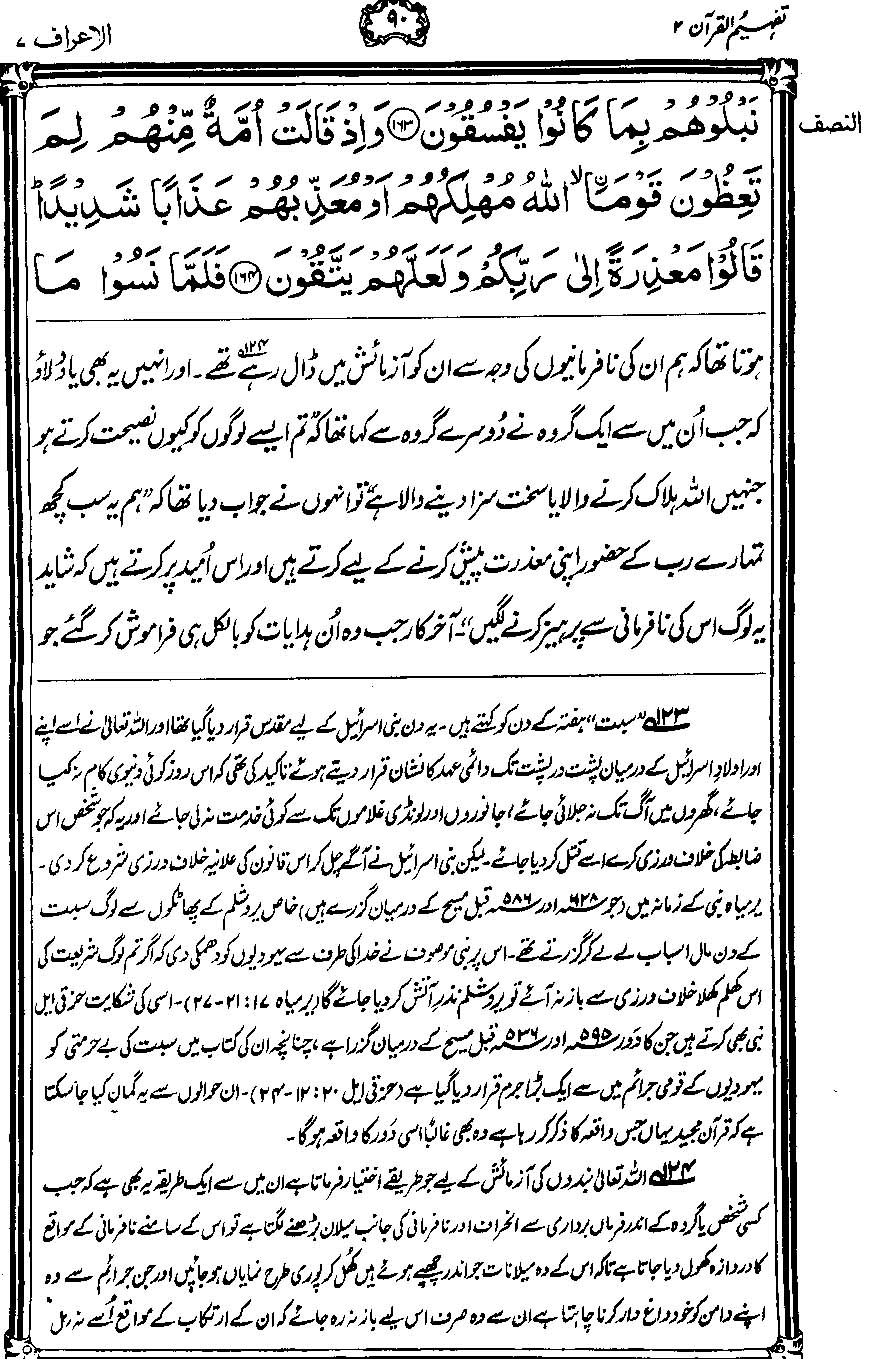 تفہیم القرآن ۲
۹۰
الاعراف ۷
النصف
نَبْلُوهُمْ بِمَا كَانُوا يَفْسُقُونَ ﴿۱۶۳﴾ وَإِذْ قَالَتْ أُمَّةٌ مِّنْهُمْ لِمَ
تَعِظُونَ قَوْمَا ۙ اللّٰهُ مُهْلِكُهُمْ أَوْ مُعَذِّبُهُمْ عَذَابًا شَدِيدًا ؕ
قَالُوْا مَعْذِرَةً إِلٰى رَبِّكُمْ وَلَعَلَّهُمْ يَتَّقُونَ ﴿۱۶۴﴾ فَلَمَّا نَسُوا مَا
ہوتا تھا کہ ہم ان کی نافرمانیوں کی وجہ سے ان کو آزمائش میں ڈال رہے ۱۲۴ تھے۔ اور انہیں یہ بھی یاد دلاؤ
کہ جب اُن میں سے ایک گروہ نے دُوسرے گروہ سے کہا تھا کہ ”تم ایسے لوگوں کو کیوں نصیحت کرتے ہو
جنہیں اللہ ہلاک کرنے والا یا سخت سزا دینے والا ہے“ تو انہوں نے جواب دیا تھا کہ ”ہم یہ سب کچھ
تمہارے رب کے حضور اپنی معذرت پیش کرنے کے لیے کرتے ہیں اور اس اُمید پر کرتے ہیں کہ شاید
یہ لوگ اس کی نافرمانی سے پرہیز کرنے لگیں“۔ آخرکار جب وہ اُن ہدایات کو بالکل ہی فراموش کر گئے جو
۱۲۳ ”سبت“ ہفتہ کے دن کو کہتے ہیں۔ یہ دن بنی اسرائیل کے لیے مقدس قرار دیا گیا تھا اور اللہ تعالیٰ نے اسے اپنے
اور اولادِ اسرائیل کے درمیان پشت در پشت تک دائمی عہد کا نشان قرار دیتے ہوئے تاکید کی تھی کہ اس روز کوئی دنیوی کام نہ کیا
جائے، گھروں میں آگ تک نہ جلائی جائے، جانوروں اور لونڈی غلاموں تک سے کوئی خدمت نہ لی جائے اور یہ کہ جو شخص اس
ضابطہ کی خلاف ورزی کرے اسے قتل کر دیا جائے۔ لیکن بنی اسرائیل نے آگے چل کر اس قانون کی علانیہ خلاف ورزی شروع کر دی۔
یرمیاہ نبی کے زمانہ میں (جو ۶۲۸ء اور ۵۸۶ء قبل مسیح کے درمیان گزرے ہیں) خاص یروشلم کے پھاٹکوں سے لوگ سبت
کے دن مال اسباب لے لے کر گزرتے تھے۔ اس پر نبی موصوف نے خدا کی طرف سے یہودیوں کو دھمکی دی کہ اگر تم لوگ شریعت کی
اس کھلم کھلا خلاف ورزی سے باز نہ آئے تو یروشلم نذرِ آتش کر دیا جائے گا (یرمیاہ ۱۷: ۲۱-۲۷)۔ اسی کی شکایت حزقی ایل
نبی بھی کرتے ہیں جن کا دَور ۵۹۵ء اور ۵۳۶ء قبل مسیح کے درمیان گزرا ہے، چنانچہ ان کی کتاب میں سبت کی بے حرمتی کو
یہودیوں کے قومی جرائم میں سے ایک بڑا جرم قرار دیا گیا ہے (حزقی ایل ۲۰: ۱۲-۲۴)۔ ان حوالوں سے یہ گمان کیا جا سکتا
ہے کہ قرآن مجید یہاں جس واقعہ کا ذکر کر رہا ہے وہ بھی غالباً اسی دَور کا واقعہ ہوگا۔
۱۲۴ اللہ تعالیٰ بندوں کی آزمائش کے لیے جو طریقے اختیار فرماتا ہے ان میں سے ایک طریقہ یہ بھی ہے کہ جب
کسی شخص یا گروہ کے اندر فرماں برداری سے انحراف اور نافرمانی کی جانب میلان بڑھنے لگتا ہے تو اس کے سامنے نافرمانی کے مواقع
کا دروازہ کھول دیا جاتا ہے تاکہ اس کے وہ میلانات جو اندر چھپے ہوئے ہیں کھُل کر پوری طرح نمایاں ہو جائیں اور جن جرائم سے وہ
اپنے دامن کو خود داغ دار کرنا چاہتا ہے ان سے وہ صرف اس لیے باز نہ رہ جائے کہ ان کے ارتکاب کے مواقع اُسے نہ مل